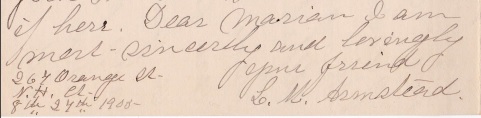 if here. Dear Marian I am
most sincerely and lovingly
your friend
L. M. Armstead.
267 Orange St.
N.H. Ct.
8th 27th 1900